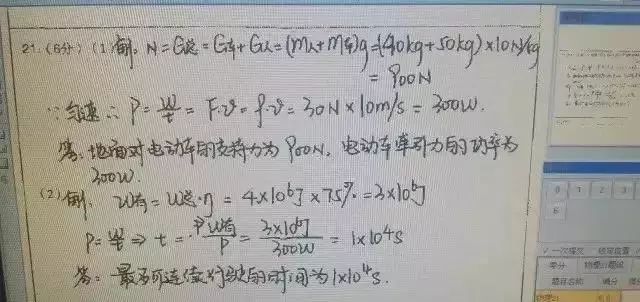 21. (6分) (1) 解. N=G总=G车+G人=(m人+m车)g=(40kg+50kg)×10N/kg
=900N
∵匀速 ∴ P=W/t=F·v=f·v=30N×10m/s=300W.
答: 地面对电动车的支持力为900N, 电动车牵引力的功率为
300W.
(2) 解. W有=W总·η=4×10⁶J×75%=3×10⁶J
P=W/t⇒t=W有/P=3×10⁶J/300W=1×10⁴s
答: 最多可连续行驶的时间为1×10⁴s.
0 1 2 3
6
零分